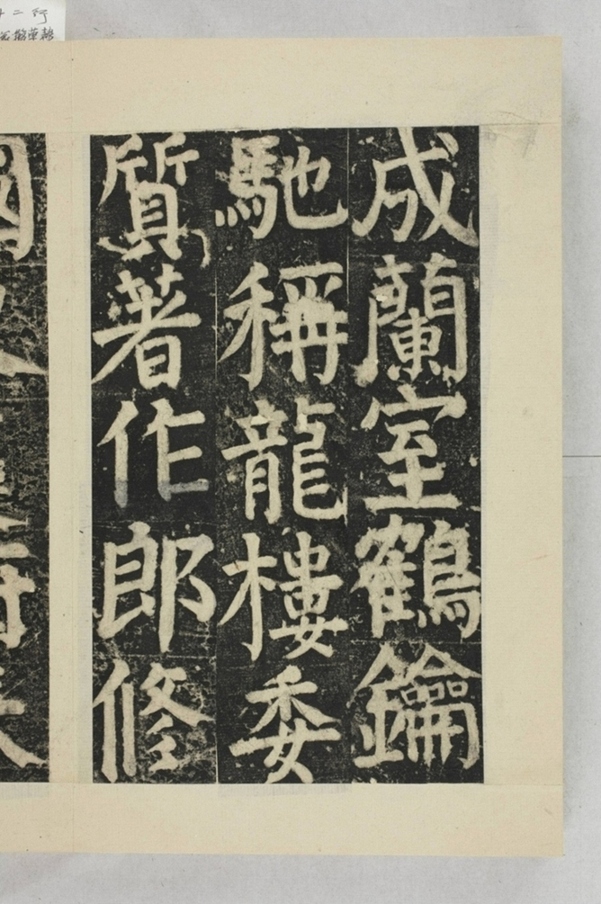 成蘭室鶴鑰
馳稱龍樓委
質著作郎修
國